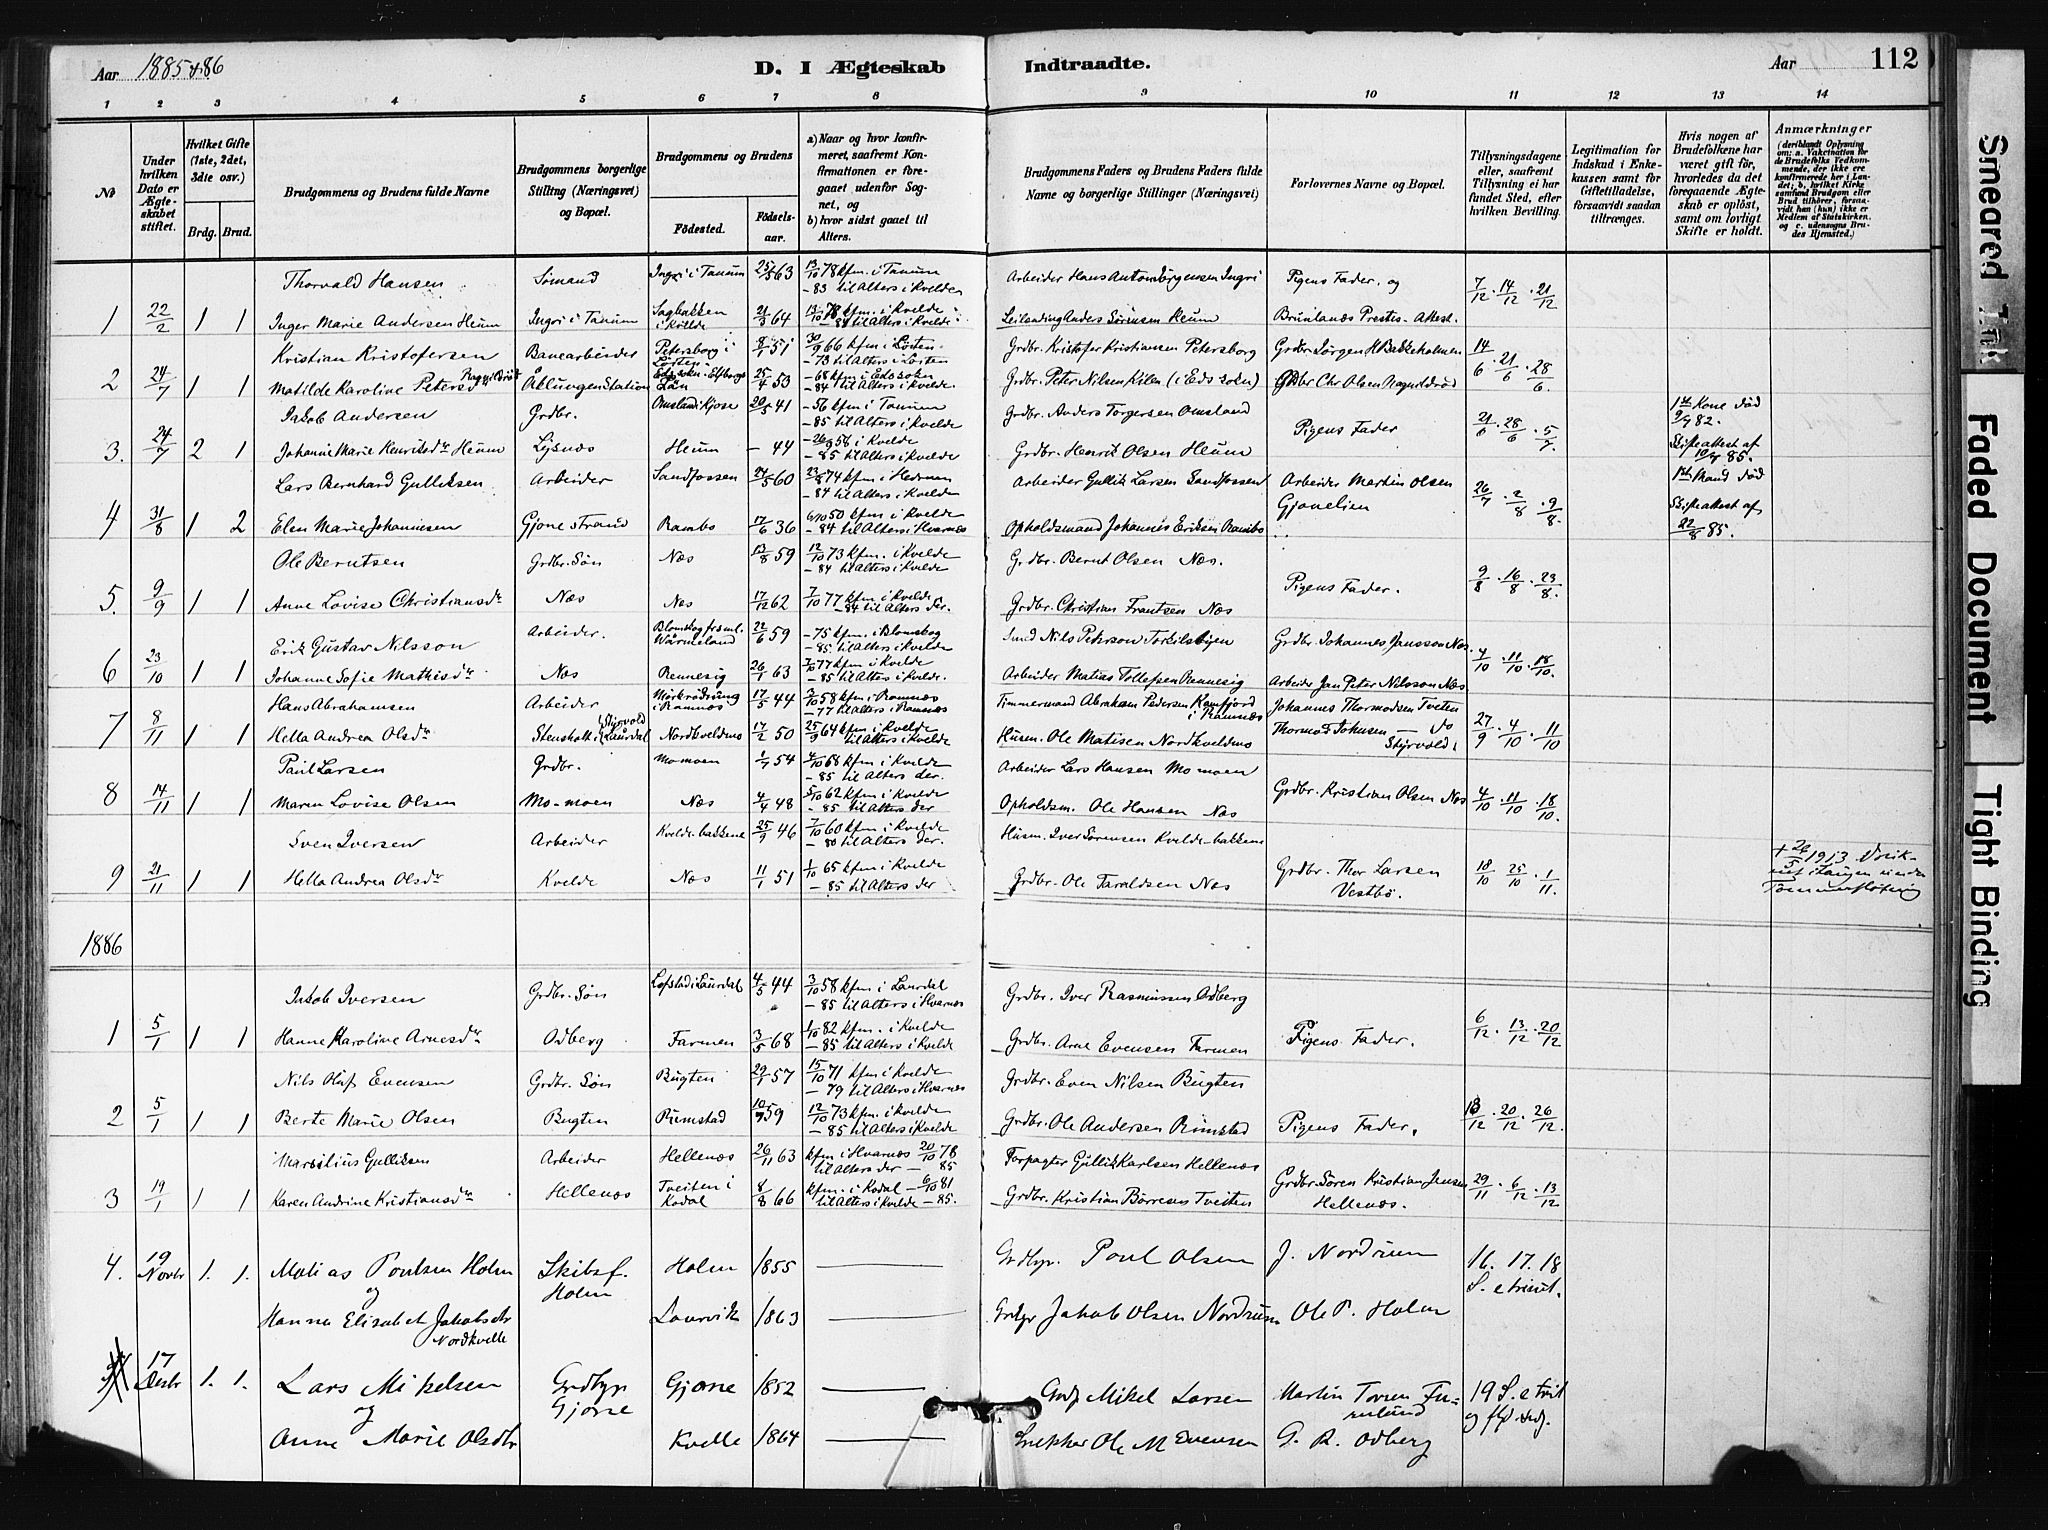 Aar 1885 & 86
D. I Ægteskab Indtraadte.
Aar 112
1 2 3 4 5 6 7 8 9 10 11 12 13 14
No
Under hvilken Dato er Ægteskabet stiftet.
Hvilket Gifte (1ste, 2det, 3die osv.)
Brdg. Brud.
Brudgommens og Brudens fulde Navne
Brudgommens borgerlige Stilling (Næringsvei) og Bopæl.
Brudgommens og Brudens
Födested. Födselsaar.
a) Naar og hvor konfirmeret, saafremt Konfirmationen er foregaaet udenfor Sognet, og
b) hvor sidst gaaet til Alters.
Brudgommens Faders og Brudens Faders fulde Navne og borgerlige Stillinger (Næringsvei)
Forlovernes Navne og Bopæl.
Tillysningsdagene eller, saafremt Tillysning ei har fundet Sted, efter hvilken Bevilling.
Legitimation for Indskud i Enkekassen samt for Giftetilladelse, forsaavidt saadan tiltrænges.
Hvis nogen af Brudefolkene har været gift för, hvorledes da det foregaaende Ægteskab er oplöst, samt om lovligt Skifte er holdt.
Anmærkninger (deriblandt Oplysning om: a. Vakcination for de Brudefolks Vedkommende, der ikke ere konfirmerede her i Landet; b. hvilket Kirkesamfund Brudgom eller Brud tilhörer, forsaavidt han (hun) ikke er Medlem af Statskirken, og c. udensogns Brudes Hjemsted.)
Thorvald Hansen Sömand Ingri i Tanum 25/3 63 13/10 78 kfm. i Tanum Arbeider Hans Anton Jörgensen Ingri Pigens Fader og 7/12 . 14/12 . 21/12
- 83 til Alters i Kvelde
1 22/2 1 1 Inger Marie Andersen Heum Ingri i Tanum Sagbakken i Kvelde 21/3 64 13/10 78 kfm. i Kvelde Leilending Anders Sörensen Heum Brunlanæs Prestes-Attest.
- 84 til Alters i Kvelde
Kristian Kristofersen Banearbeider Petersborg i Löiten 8/1 51 30/9 66 kfm i Löiten Grdbr. Kristofer Kristiansen Petersborg Grdbr. Jörgen H Bakkeholmen 14/6 . 21/6 . 28/6
- 73 til Alters i Löiten
2 24/7 1 1 Matilde Karoline Petersdr Åklungen Station 25/4 53 - 68 kfm i Edssokn Grdbr. Peter Nilsen Kilen (i Edssokn) Grdbr Chr. Olsen
- 84 til Alters i Kvelde.
Jakob Andersen Grdbr. Omsland i Kjose 20/5 41 - 56 kfm i Tanum Grdbr. Anders Torgersen Omsland Pigens Fader 21/6 . 28/6 . 5/7 1ste Kone död 9/7 82.
- 85 til Alters i Kvelde
3. 24/7 2 1 Johanne Marie Henriksdr Heum Lysnæs Heum - 44 - 58 i Kvelde Grdbr. Henrik Olsen Heum Skifteattest af 85.
- 85 til Alters i Kvelde
Lars Bernhard Gulliksen Arbeider Sandfossen 24/5 60 74 kfm i Hedrum Arbeider Gullik Larsen Sandfossen Arbeider Martin Olsen Gjonelien 26/7 . 2/8 . 9/8 1ste Mand död
- 84 til Alters i Kvelde
4 31/8 1 2 Elen Marie Johannesen Gjone strand Rambo 17/6 36 6/10 50 kfm i Kvelde Opholdsmand Johannes Eriksen Rambo Skifteattest af 22/8 85.
- 84 til Alters i Hvarnæs
Ole Berntsen Grdbr. Sön Næs 13/8 59 12/10 73 kfm. i Kvelde Grdbr. Bernt Olsen Næs.
- 84 til Alters i Kvelde
5. 9/9 1 1 Anne Lovise Christiansdr Næs Næs 17/12 62 7/10 77 kfm i Kvelde Grdbr. Christian Frantsen Næs Pigens Fader. 9/8 . 16/8 . 23/8.
- 84 til Alters der.
Erik Gustav Nilsson Arbeider. Blomskog Wärmeland 22/6 59 - 75 kfm. i Blomskog Smed Nils Peterson Torkilsbyen Grdbr. Johannes Jansson Næs.
- 85 til Alters i Kvelde
6 23/10 1 1 Johanne Sofie Mathisdr Næs Rennesig 26/1 63 7/10 77 kfm. i Kvelde Arbeider Matias Tollefsen Rennesig Arbeider Jan Peter Nilsson Næs 4/10 . 11/10 . 18/10.
- 85 til Alters i Kvelde.
Hans Abrahamsen Arbeider i Ramnæs 17/5 44 3/10 58 kfm i Ramnæs Timmermand Abraham Pedersen i Ramnæs Johannes Thormodsen Tveten
- 77 til Alters i Ramnæs
7 8/11 1 1 Hella Andrea Olsdr Stensholt Styrvold i Laurdal Nordkveldmo 17/2 50 25/9 64 kfm. i Kvelde Husm. Ole Matisen Nordkveldmo Thormod Johnsen — do Styrvold. 27/9 . 4/10 . 11/10
til Alters i Kvelde
Paul Larsen Grdbr. Momoen 1/7 54 4/10 68 kfm. i Kvelde Arbeider Lars Hansen Momoen
- 85 til Alters der.
8 14/11 1 1 Maren Lovise Olsen Mo-moen Næs 4/4 48 5/10 62 kfm. i Kvelde Opholdsm. Ole Hansen Næs Grdbr. Kristian Olsen Næs 4/10 . 11/10 . 18/10.
- 85 til Alters der
Sven Iversen Arbeider Kvelde-bakkene 25/9 46 7/10 60 kfm. i Kvelde Husm. Iver Sörensen Kvelde-bakkene
- 80 til Alters der.
9 21/11 1 1 Hella Andrea Olsdr Kvelde Næs 11/1 51 1/10 65 kfm. i Kvelde Grdbr. Ole Faraldsen Næs Grdbr. Thor Larsen Vestbö. 18/10 25/10 . 1/11. + 26/5 1913 Druknet i Laagen under Tömmerflötning
- 85 til Alters der
1886
Jakob Iversen Grdbr. Sön Lofstad i Laurdal 4/5 44 3/10 58 kfm. i Laurdal Grdbr. Iver Rasmussen Odberg
- 85 til Alters i Hvarnæs
1 5/1 1 1 Hanne Karoline Arnesdr Odberg Farmen 3/5 68 1/10 82 kfm. i Kvelde Grdbr. Arne Evensen Farmen Pigens Fader. 6/12 . 13/12 . 20/12
- 85 til Alters i Kvelde
Nils Oluf Evensen Grdbr. Sön Bugten 29/1 57 15/10 71 kfm. i Kvelde Grdbr. Even Nilsen Bugten
- 79 til Alters i Hvarnæs
2 5/1 1 1 Berte Marie Olsen Bugten Rimstad 10/9 59 12/10 73 kfm. i Kvelde Grdbr. Ole Andersen Rimstad Pigens Fader. 13/12 . 20/12 . 26/12.
- 85 til Alters i Kvelde
Marsilius Gulliksen Arbeider Hellenæs 26/11 63 kfm i Hvarnæs 20/10 78 Forpagter Gullik Karlsen Hellenæs
til Alters der - 85
3 19/1 1 1 Karen Andrine Kristiansdr Hellenæs Tveiten i Kodal 8/8 66 kfm. i Kodal - 6/10 81 Grdbr. Kristian Börresen Tveiten Grdbr. Sören Kristian Jensen Hellenæs. 29/11 . 6/12 . 13/12
til Alters i Kvelde - 85.
4. 19 Novbr 1. 1. Matias Poulsen Holm Skibsf. Holm Holm 1855 — Grdbgr. Poul Olsen J. Nordrum 16. 17. 18 S. e trinit.
og
Hanna Elisabet Jakobsdtr Nordkvelle Laurvik 1863 — Grdbgr Jakob Olsen Nordrum Ole P. Holm
17 Decbr 1. 1. Lars Mikelsen Grdbgr Gjone Gjone 1852 — Grdb Mikel Larsen Martin Furulund 19 S. e trit
og
Anne Marie Olsdtr Kvelle 1864 — Ole M Evensen G. R. Odberg
Smeared Ink
Faded Document
Tight Binding